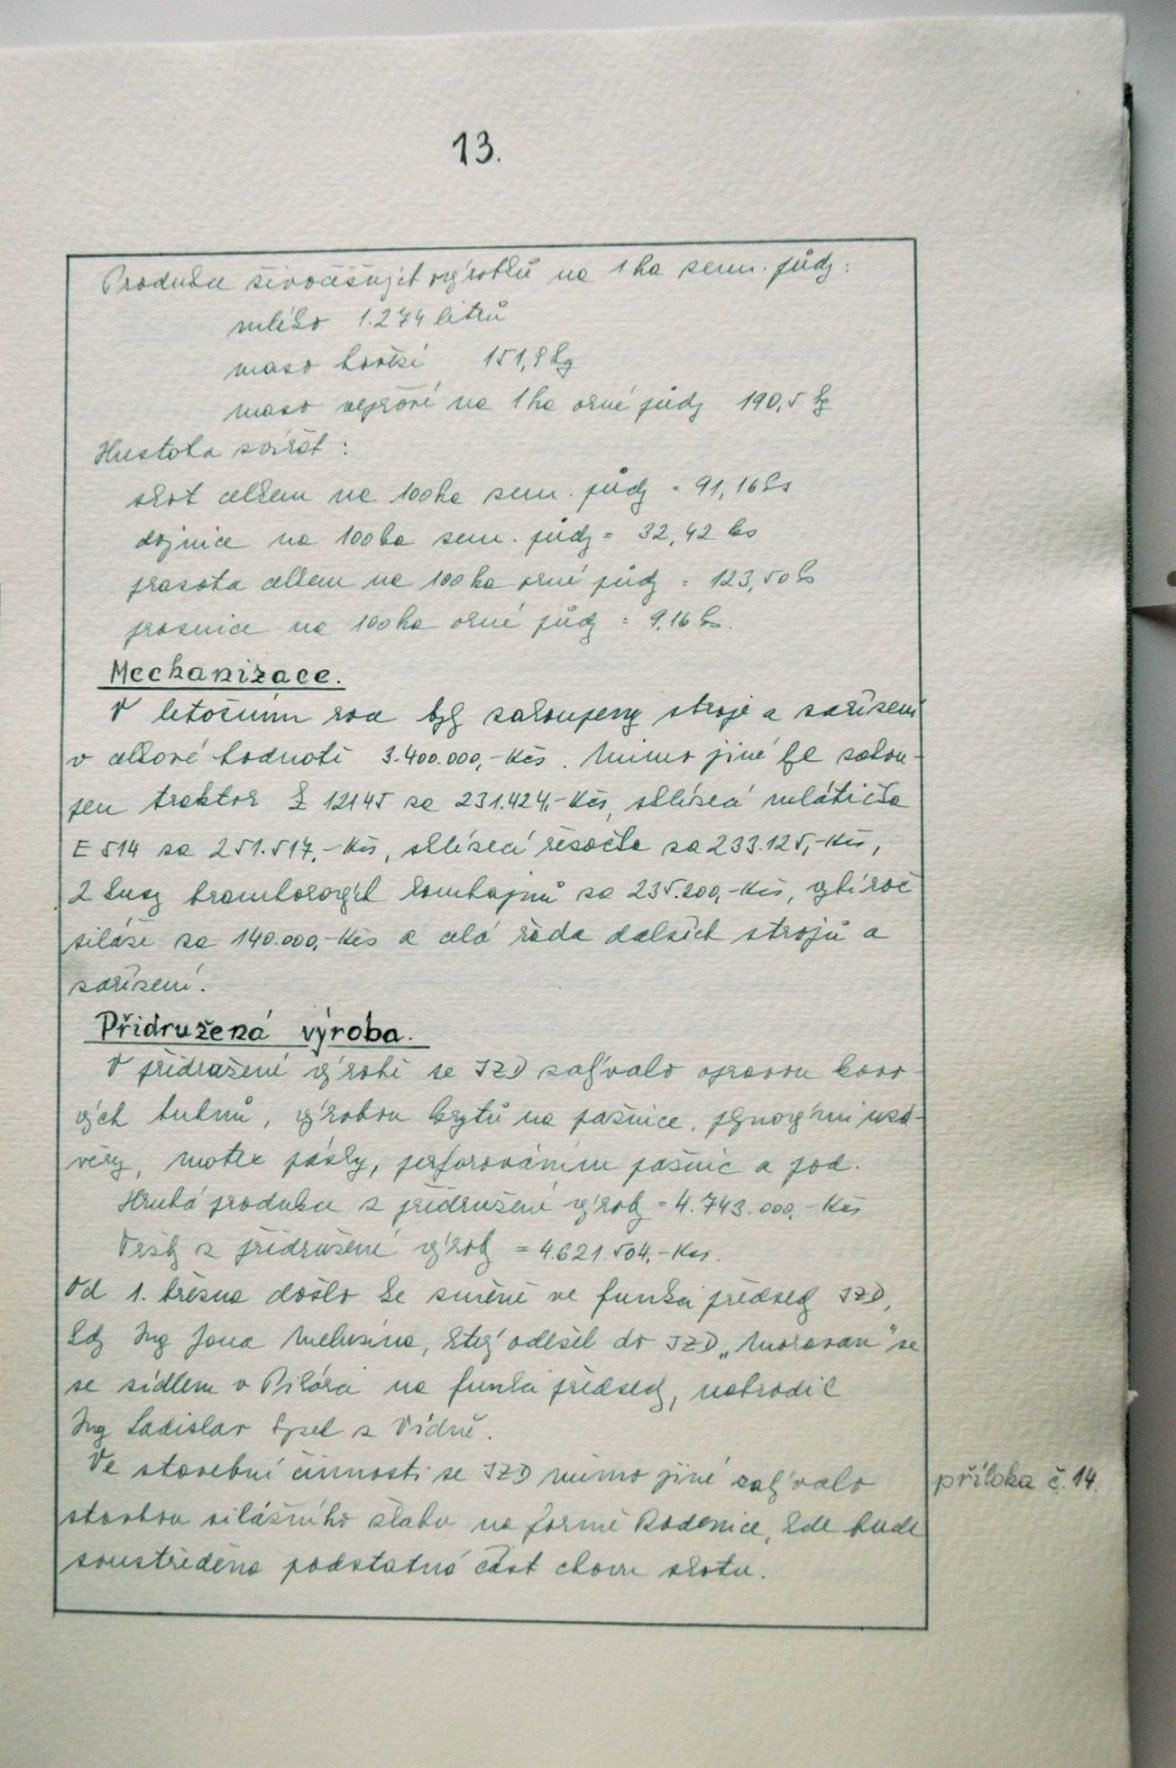 13.
Produkce živočišných výrobků na 1 ha zem. půdy:
mléko 1.274 litrů
maso hovězí 151,8 kg
maso vepřové na 1 ha orné půdy 190,5 kg
Hustota zvířat:
skot celkem na 100 ha zem. půdy = 91,16 ks
dojnice na 100 ha zem. půdy = 32,42 ks
prasata celkem na 100 ha orné půdy = 123,50 ks
prasnice na 100 ha orné půdy = 9,16 ks.
Mechanizace.
V letošním roce byly zakoupeny stroje a zařízení
v celkové hodnotě 3.400.000,- Kčs. Mimo jiné byl zakou-
pen traktor Z 12145 za 231.424,- Kčs, sklízecí mlátička
E 514 za 251.517,- Kčs, sklízecí řezačka za 233.125,- Kčs,
2 kusy bramborových kombajnů za 235.200,- Kčs, vybírač
siláže za 140.000,- Kčs a celá řada dalších strojů a
zařízení.
Přidružená výroba.
V přidružené výrobě se JZD zabývalo opravou kovo-
vých bubnů, výrobou krytů na pažnice, plynovými uzá-
věry, motex pásky, perforováním pažnic a pod.
Hrubá produkce z přidružené výroby = 4.743.000,- Kčs
Tržby z přidružené výroby = 4.621.504,- Kčs.
Od 1. března došlo ke změně ve funkci předsedy JZD,
kdy Ing Jana který odešel do JZD „Moravan" se
se sídlem v na funkci předsedy, nahradil
Ing Ladislav z Vídně.
Ve stavební činnosti se JZD mimo jiné zabývalo
stavbou silážního žlabu na farmě kde bude
soustředěna podstatná část chovu skotu.
příloha č. 14.